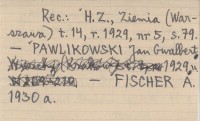 Rec.: H.Z., Ziemia (War-
szawa) t. 14, r. 1929, nr 5, s. 79.
— PAWLIKOWSKI Jan Gwalbert,
1929,
— FISCHER A.
1930 a.